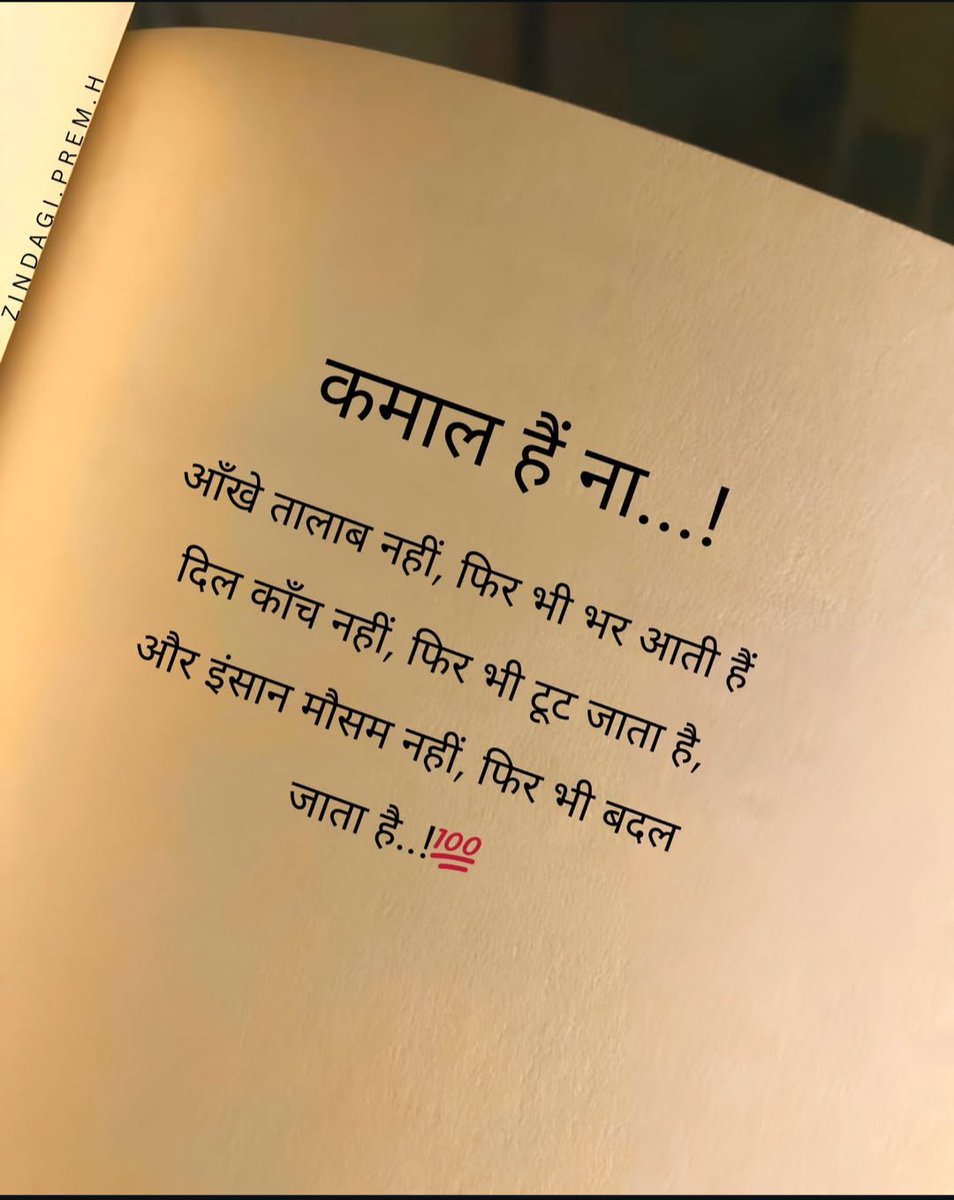 ZINDAGI.PREM.H
कमाल हैं ना...!
आँखे तालाब नहीं, फिर भी भर आती हैं
दिल काँच नहीं, फिर भी टूट जाता है,
और इंसान मौसम नहीं, फिर भी बदल
जाता है..!💯